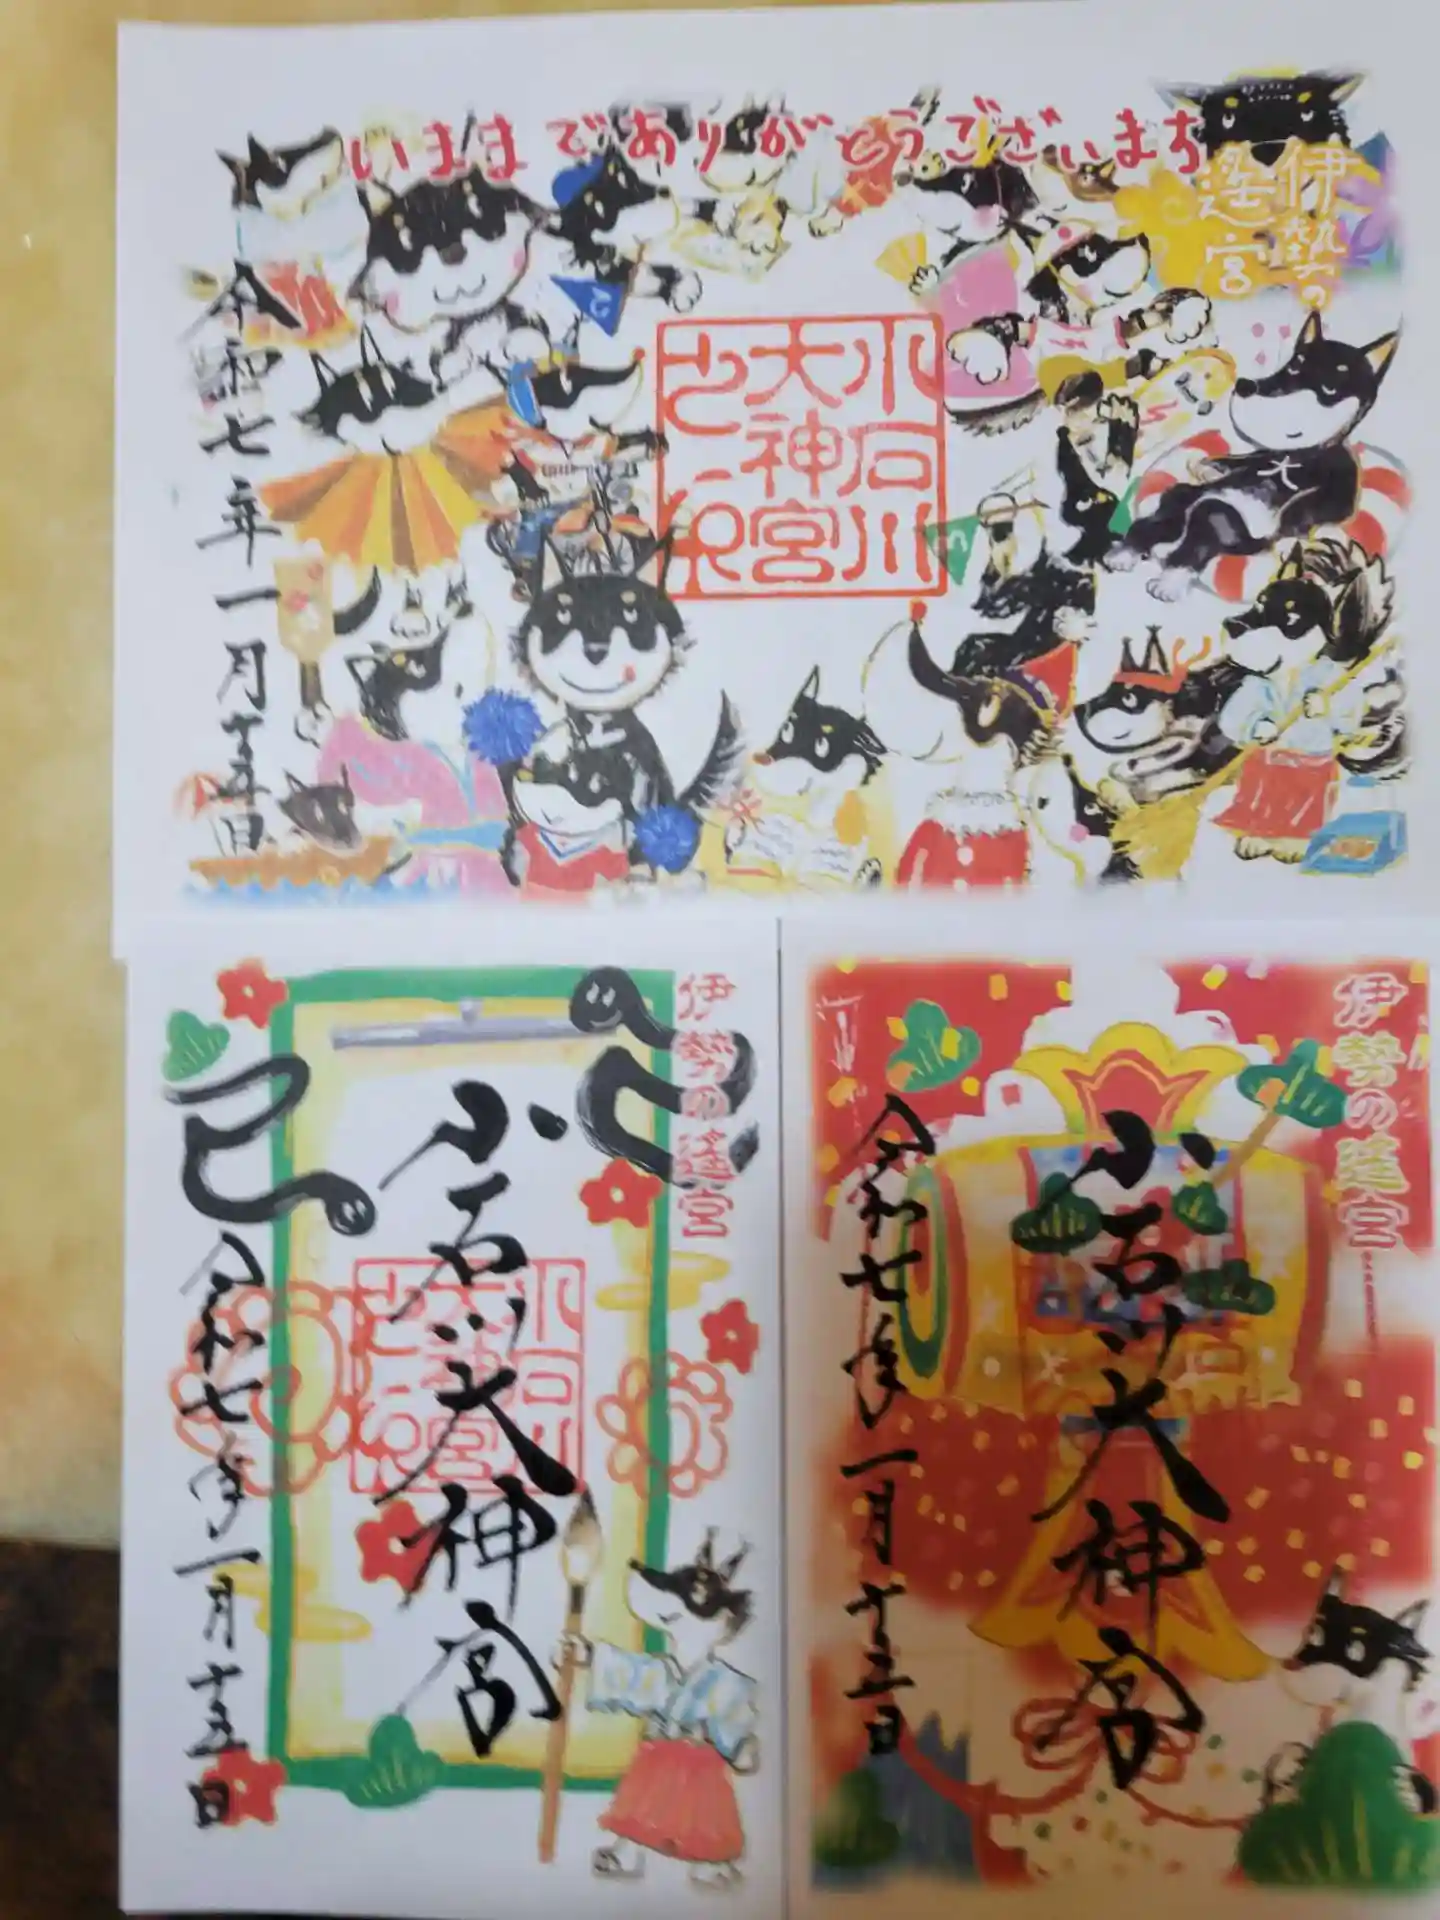 いままでありがとうございます
伊勢の
遥宮
小石川
大神宮
之印
令和七年一月十五日
伊勢の遥宮
小石川大神宮
小石川
大神宮
之印
令和七年一月十五日
伊勢の遥宮
小石川大神宮
令和七年一月十五日